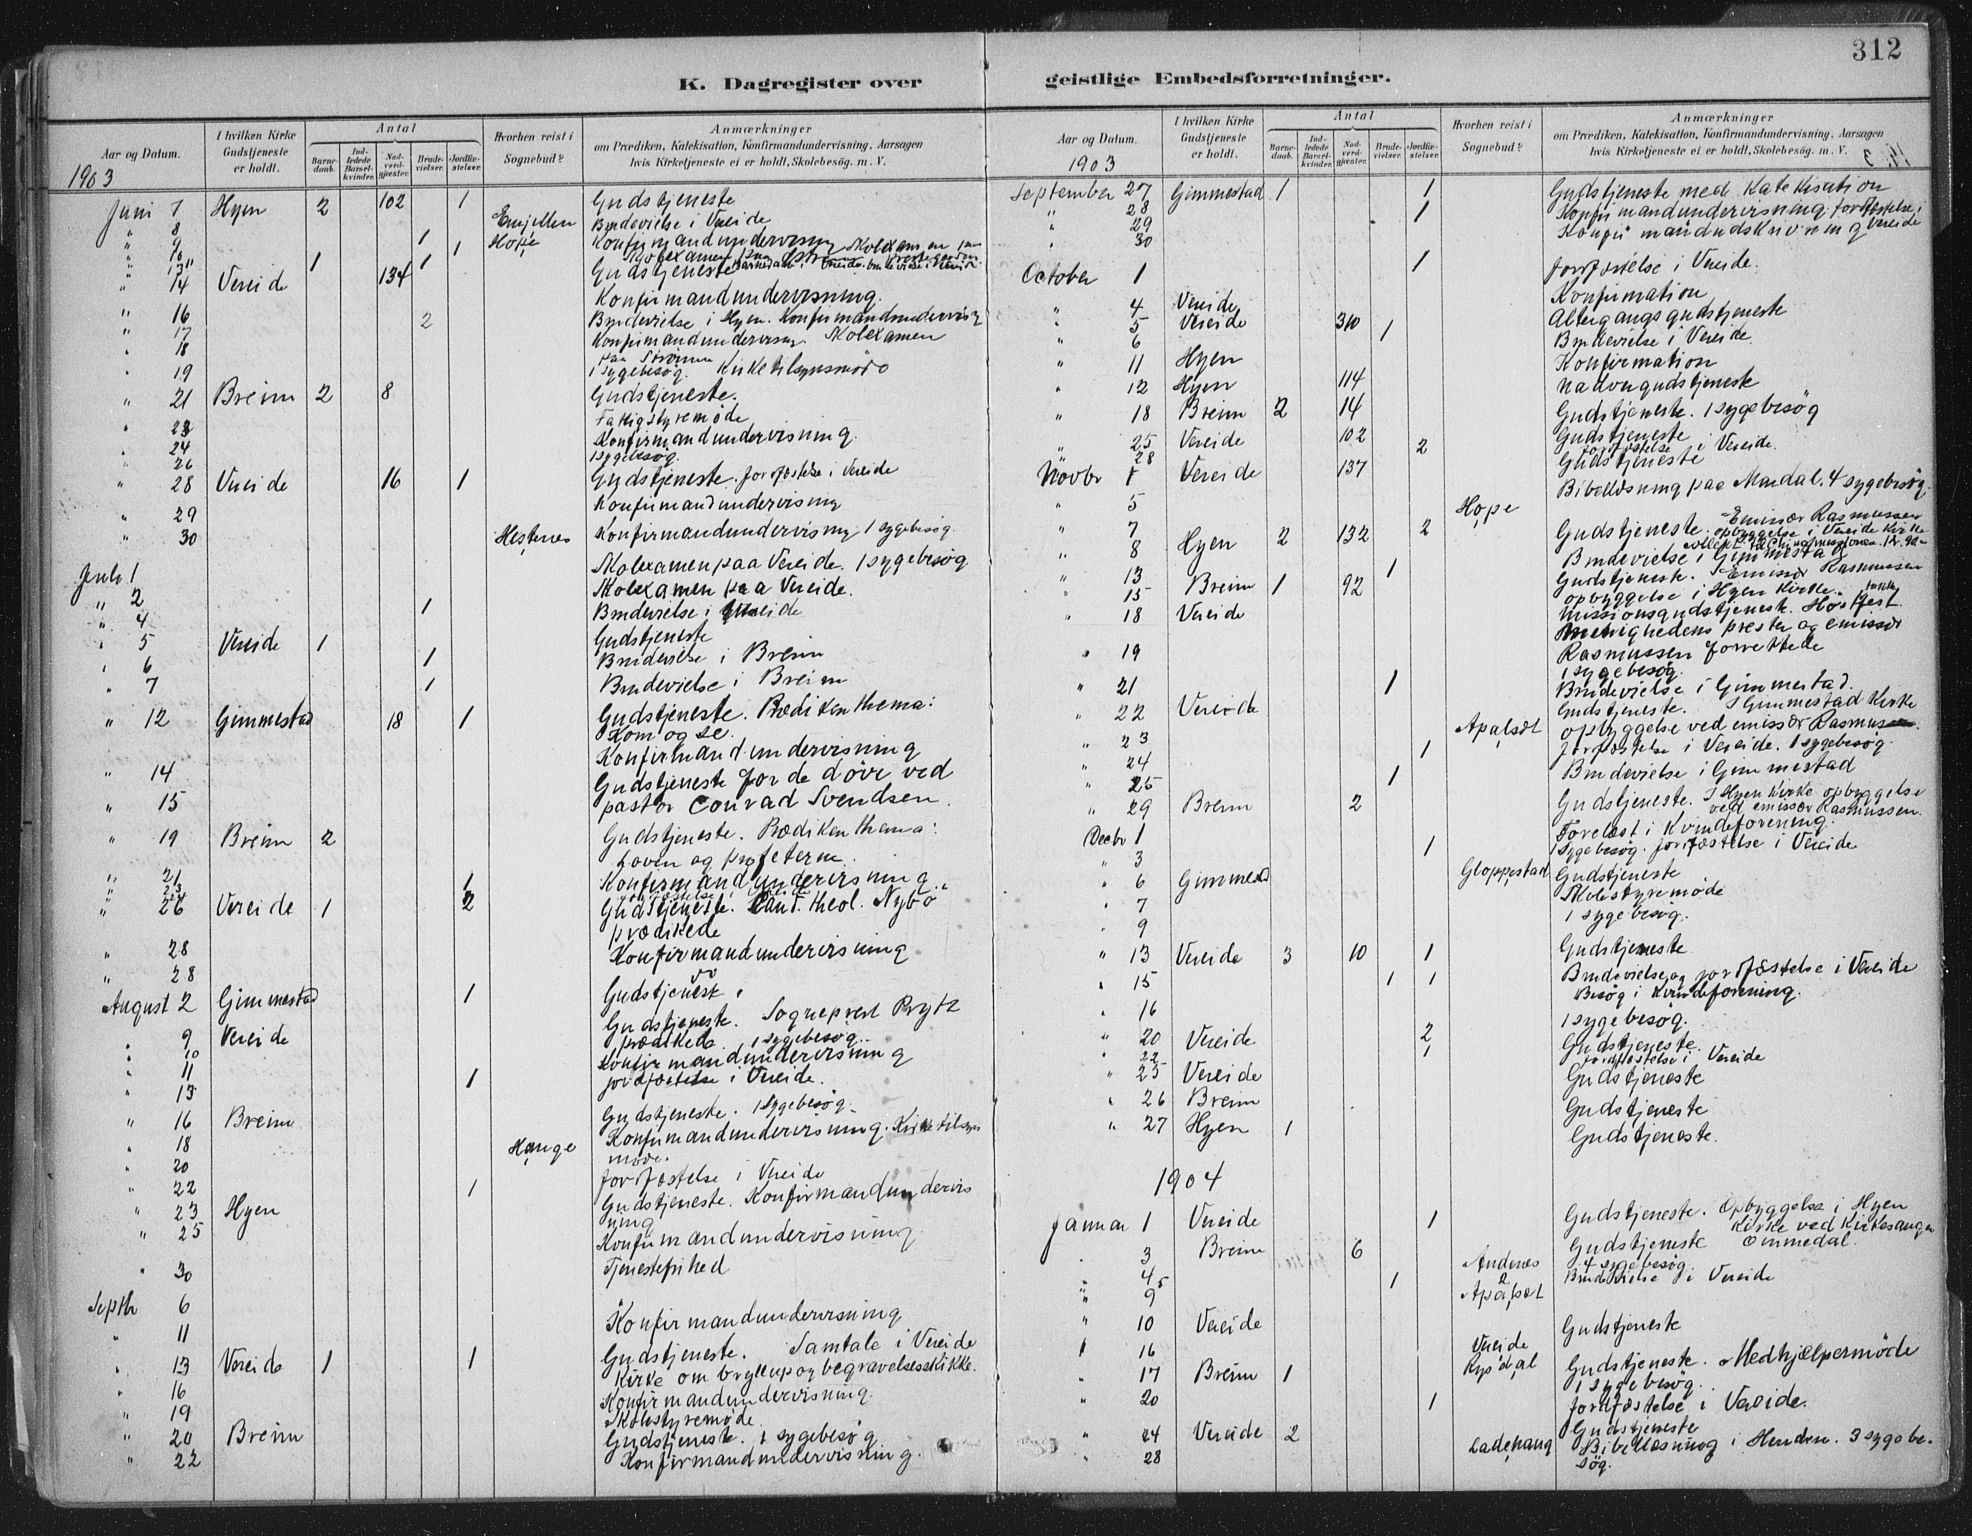 312
K. Dagregister over geistlige Embedsforretninger.
Aar og Datum.
I hvilken Kirke Gudstjeneste er holdt.
Antal
Barnedaab.
Indledede Barselkvinder.
Nadverdgjester.
Brudevielser.
Jordfæstelser.
Hvorhen reist i Sognebud?
Anmærkninger
om Prædiken, Katekisation, Konfirmandundervisning, Aarsagen
hvis Kirketjeneste ei er holdt, Skolebesøg. m. V.
1903
Juni 7 Hyen 2 102 1 Gudstjeneste
" 8 Brudevielse i Vereide
" 9 1 Hope Konfirmandundervisning
" 10 1
" 14 Vereide 134 Gudstjeneste
Konfirmandundervisning.
" 16 2 Brudevielse i Hyen. Konfirmandundervisng
" 17 Konfirmandundervisng. Skolexamen
" 18
" 19 1 Sygebesøg. Kirketilsynsmøde
" 21 Breim 2 8 Gudstjeneste.
" 23 Fattigstyremøde
" 24 Konfirmandundervisning.
" 26 1 sygebesøg.
" 28 Vereide 16 1 Gudstjeneste. Jordfæstelse i Vereide
" 29 Konfirmandundervisning
" 30 Hestenes Konfirmandundervisning 1 sygebesøg.
Juli 1 Skolexamen paa Vereide. 1 sygebesøg
" 2 Skolexamen paa Vereide.
" 4 1 Brudevielse i Vereide
" 5 Vereide 1 Gudstjeneste
" 6 1 Brudevielse i Breim
" 7 1 Brudevielse i Breim
" 12 Gimmestad 18 1 Gudstjeneste. Prædikenthema:
Kom og se.
" 14 Konfirmandundervisning
" 15 Gudstjeneste for de døve ved
pastor Conrad Svendsen.
" 19 Breim 2 Gudstjeneste. Prædikenthema:
Loven og profeterne.
" 21 Konfirmandundervisning
" 23 1
" 26 Vereide 1 2 Gudstjeneste. Cand. theol. Nybø
prædikede
" 28 Konfirmandundervisning
" 28
August 2 Gimmestad 1 Gudstjeneste
" 9 Vereide Gudstjeneste. Sogneprest Prytz
prædikede. 1 sygebesøg.
" 10 Konfirmandundervisning
" 11
" 13 1 jordfæstelse i Vereide.
" 16 Breim Gudstjeneste. 1 sygebesøg.
" 18 Hauge Konfirmandundervisning. Kirketilsyns
møde.
" 20
" 22 1 Jordfæstelse i Vereide
" 23 Hyen Gudstjeneste. Konfirmandundervis
ning
" 25 Konfirmandundervisning
" 30 Tjenestefrihed
Septbr 6
" 11 Konfirmandundervisning
" 13 Vereide 1 1 Gudstjeneste. Samtale i Vereide
Kirke om bryllup og begravelsesskikke.
" 16 Konfirmandundervisning.
" 19 Skolestyremøde.
" 20 Breim Gudstjeneste. 1 sygebesøg
" 22 Konfirmandundervisning.
Aar og Datum.
I hvilken Kirke Gudstjeneste er holdt.
Antal
Barnedaab.
Indledede Barselkvinder.
Nadverdgjester.
Brudevielser.
Jordfæstelser.
Hvorhen reist i Sognebud?
Anmærkninger
om Prædiken, Katekisation, Konfirmandundervisning, Aarsagen
hvis Kirketjeneste ei er holdt, Skolebesøg. m. V.
1903
September 27 Gimmestad 1 1 Gudstjeneste med Katekisation
" 28 1 Konfirmandundervisning. Jordfæstelse i
" 29 Vereide
" 30 Konfirmandudskrivning
October 1 1 Jordfæstelse i Vereide.
" 4 Vereide Konfirmation
" 5 Vereide 310 Altergangsgudstjeneste
" 6 1 Brudevielse i Vereide.
" 11 Hyen Konfirmation
" 12 Hyen 114 Nadvergudstjeneste
" 18 Breim 2 14 Gudstjeneste. 1 sygebesøg
" 25 Vereide 102 Gudstjeneste
" 28 2 Jordfæstelse i Vereide.
Novbr 1 Vereide 137 Gudstjeneste
" 5 Bibellæsning paa Mardal. 4 sygebesøg.
" 7 Hope
" 8 Hyen 2 132 2 Gudstjeneste. Emissær Rasmussen
opbyggelse i Vereide Kirke
" 13 1 Brudevielse i Gimmestad
" 15 Breim 1 92 Gudstjeneste. Emissær Rasmussen
opbyggelse i Hyen Kirke.
" 18 Vereide Missionsgudstjeneste. Høstfest
Menighedens prester og emissær
Rasmussen forrettede
" 19 1 sygebesøg.
" 21 1 Brudevielse i Gimmestad.
" 22 Vereide Gudstjeneste. I Gimmestad Kirke
opbyggelse ved emissær Rasmussen.
" 23 Apalsæt
" 24 1 Jordfæstelse i Vereide. 1 sygebesøg.
" 25 1 Brudevielse i Gimmestad
" 29 Breim 2 Gudstjeneste. I Hyen Kirke opbyggelse
ved emissær Rasmussen.
Decbr 1 Forelæst i Kvindeforening.
" 3 1 1 Sygebesøg. Jordfæstelse i Vereide
" 6 Gimmestad Gloppestad Gudstjeneste
" 7 Skolestyremøde
" 9 1 sygebesøg.
" 13 Vereide 3 10 1 Gudstjeneste
" 15 1 1 Brudevielse og jordfæstelse i Vereide
Besøg i Kvindeforening.
" 16 1 sygebesøg.
" 20 Vereide 2 Gudstjeneste.
" 22 1 Jordfæstelse i Vereide
" 25 Vereide Gudstjeneste
" 26 Breim Gudstjeneste
" 27 Hyen 1 Gudstjeneste.
1904
Januar 1 Vereide 1 Gudstjeneste. Opbyggelse i Hyen
Kirke ved Kirkesanger
Ommedal.
" 3 Breim 6 Gudstjeneste
" 4 Andenes 4 sygebesøg.
" 5 1 Brudevielse i Vereide
" 9
" 10 Vereide Gudstjeneste
" 16 Vereide
" 17 Breim 1 Gudstjeneste. Medhjælpermøde
1 sygebesøg.
" 20 1 Jordfæstelse i Vereide.
" 24 Vereide 2 Gudstjeneste
" 28 Ladehaug Bibellæsning i Henden. 3 sygebe-
søg.